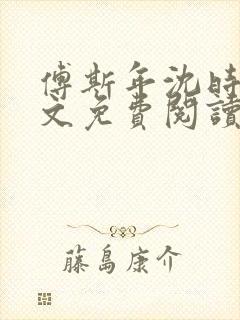 傅斯年沈時
文免費閱讀
藤島康介